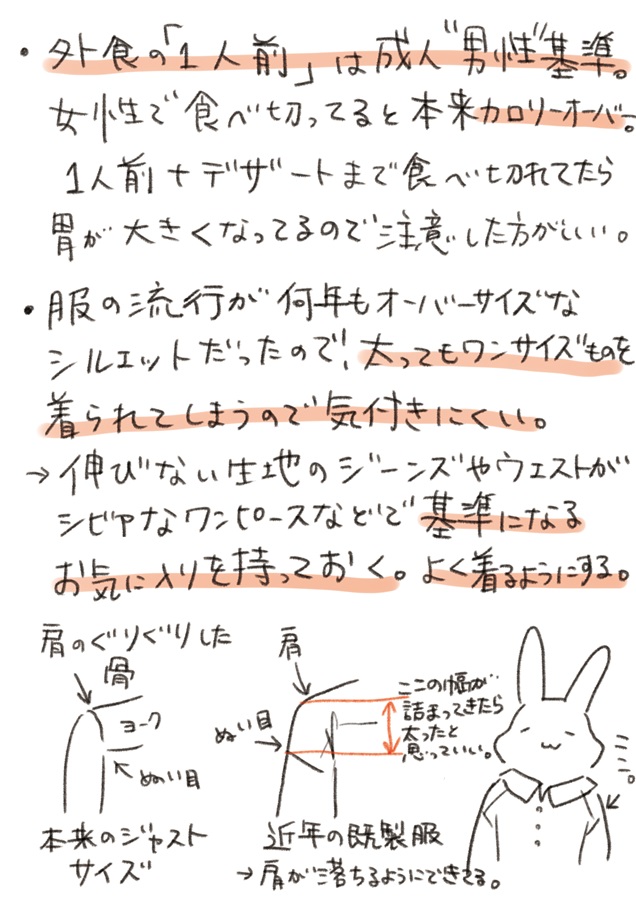 ・外食の「1人前」は成人"男性"基準。
女性で食べ切ってると本来カロリーオーバー。
1人前+デザートまで食べ切れてたら
胃が大きくなってるので注意した方がいい。
・服の流行が何年もオーバーサイズな
シルエットだったので、太ってもワンサイズものを
着られてしまうので気付きにくい。
→伸びない生地のジーンズやウェストが
シビアなワンピースなどで基準になる
お気に入りを持っておく。よく着るようにする。
肩のぐりぐりした
骨
ヨーク
ぬい目
本来のジャスト
サイズ
肩
ぬい目
ここの幅が
詰まってきたら
太ったと
思っていい。
近年の既製服
→肩が落ちるようにできてる。